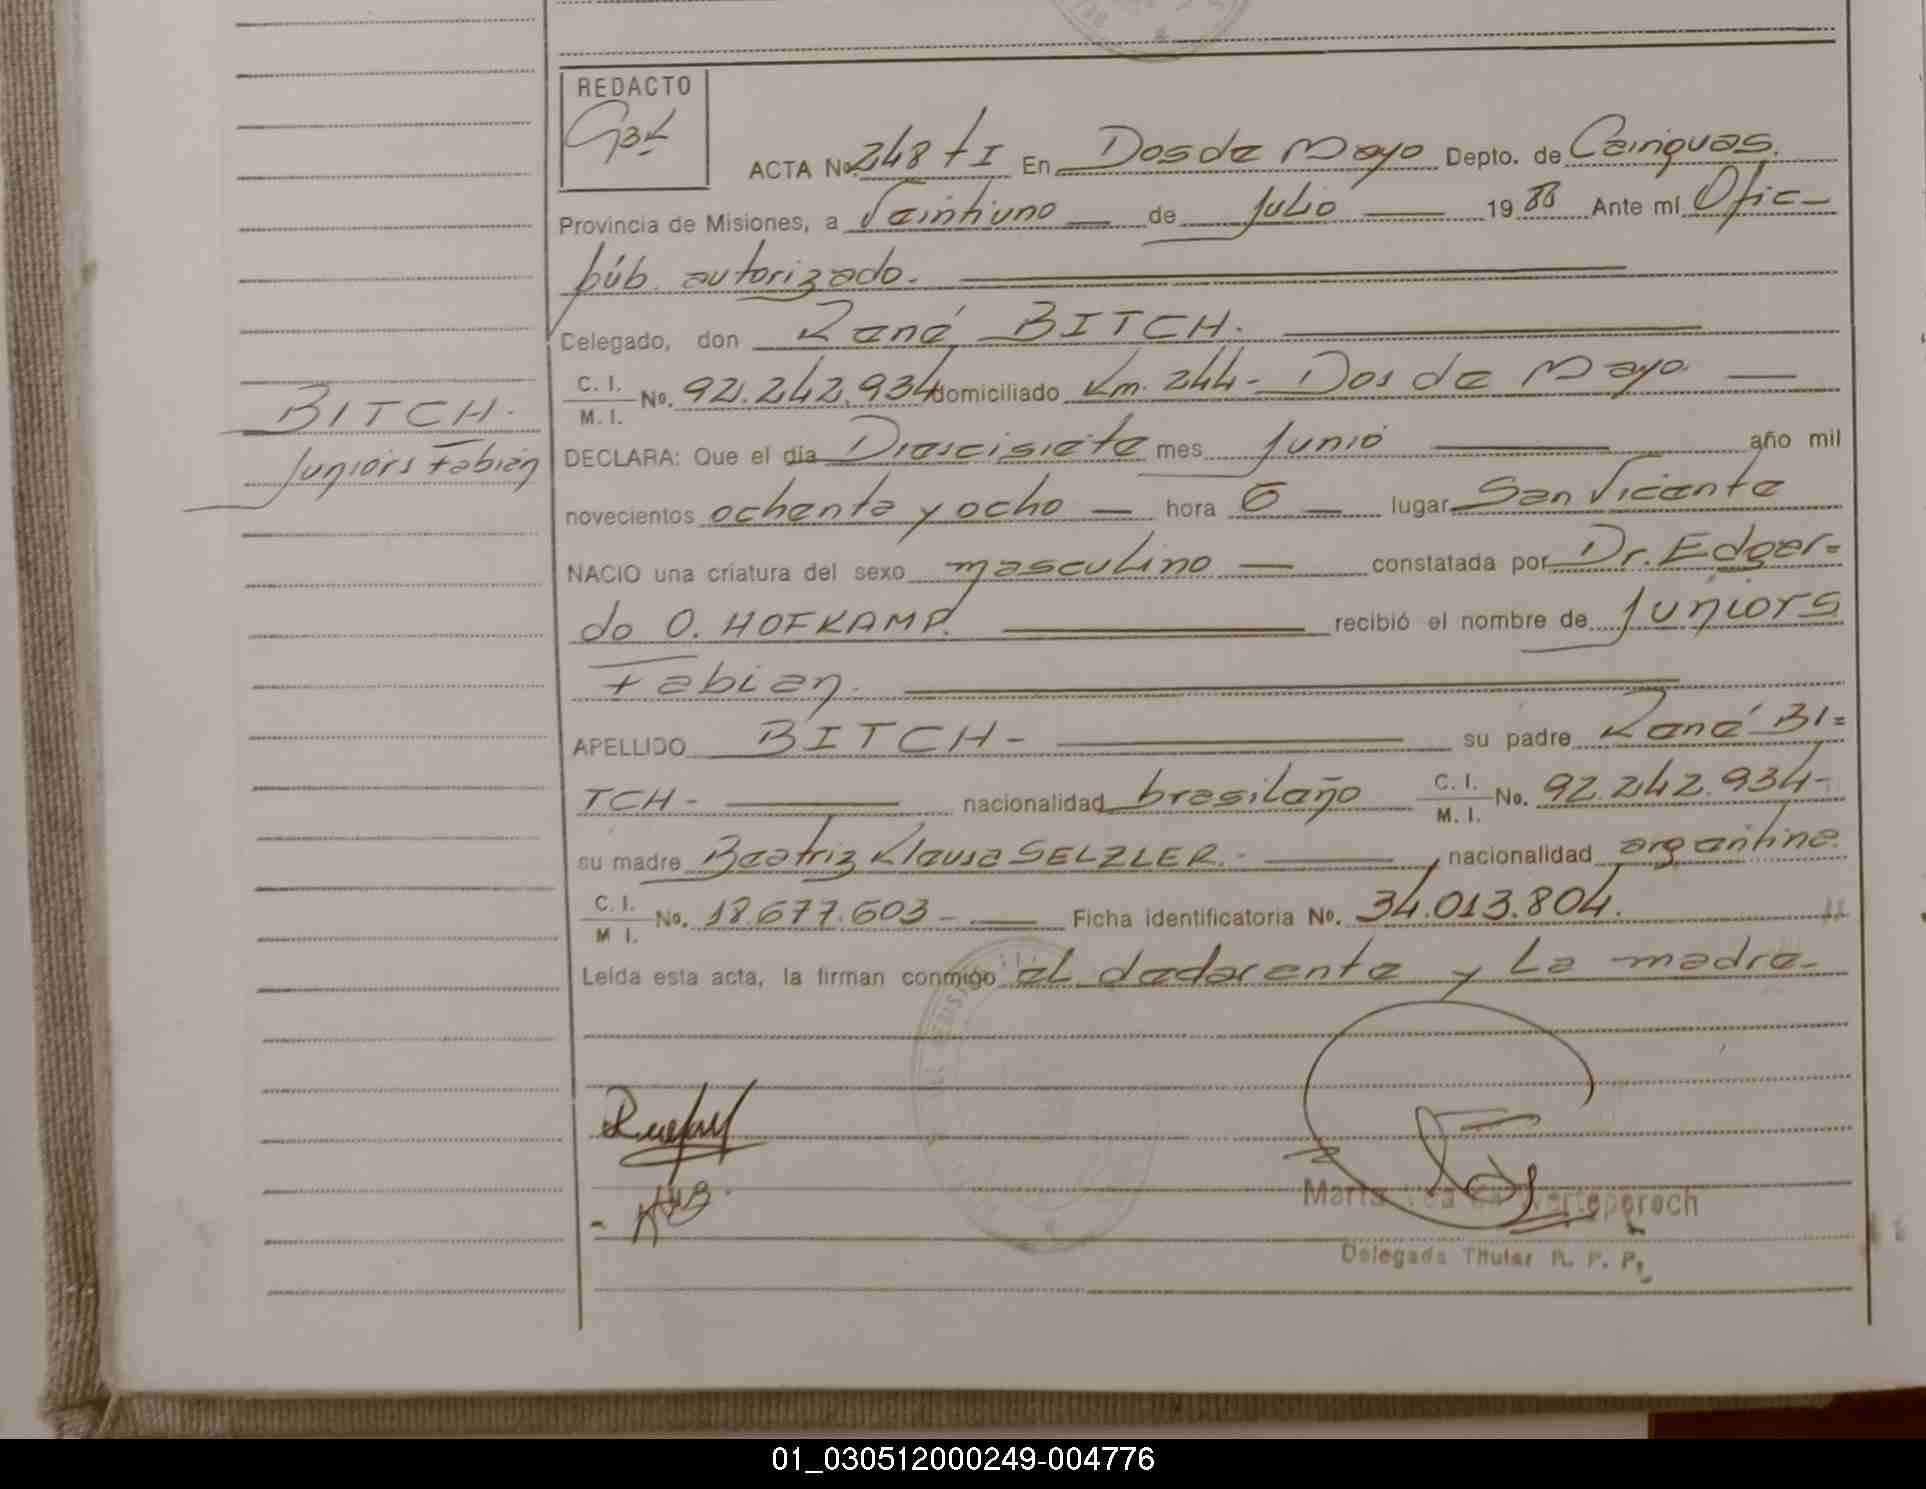 REDACTO
ACTA No. 248 tI En Dos de Mayo Depto. de Cainguas.
Provincia de Misiones, a Veintiuno de Julio 1988 Ante mí Ofic-
púb. autorizado.
Delegado, don René BITCH.
C. I. M. I. No. 92.242.934 domiciliado Km. 244- Dos de Mayo
BITCH.
Juniors Fabián
DECLARA: Que el día Diescisiete mes Junio año mil
novecientos ochenta y ocho hora 6 lugar San Vicente
NACIO una criatura del sexo masculino constatada por Dr. Edgar=
do O. HOFKAMP. recibió el nombre de Juniors
Fabian.
APELLIDO BITCH- su padre René BI=
TCH- nacionalidad brasileño C. I. M. I. No. 92.242.934-
su madre Beatriz Klausa SELZLER.- nacionalidad argentina.
C. I. M I. No. 18.677.603- Ficha identificatoria No. 34.013.804.
Leída esta acta, la firman conmigo el declarente y la madre-
Marta de Werteperoch
Delegada Titular R. P. P.
01_030512000249-004776